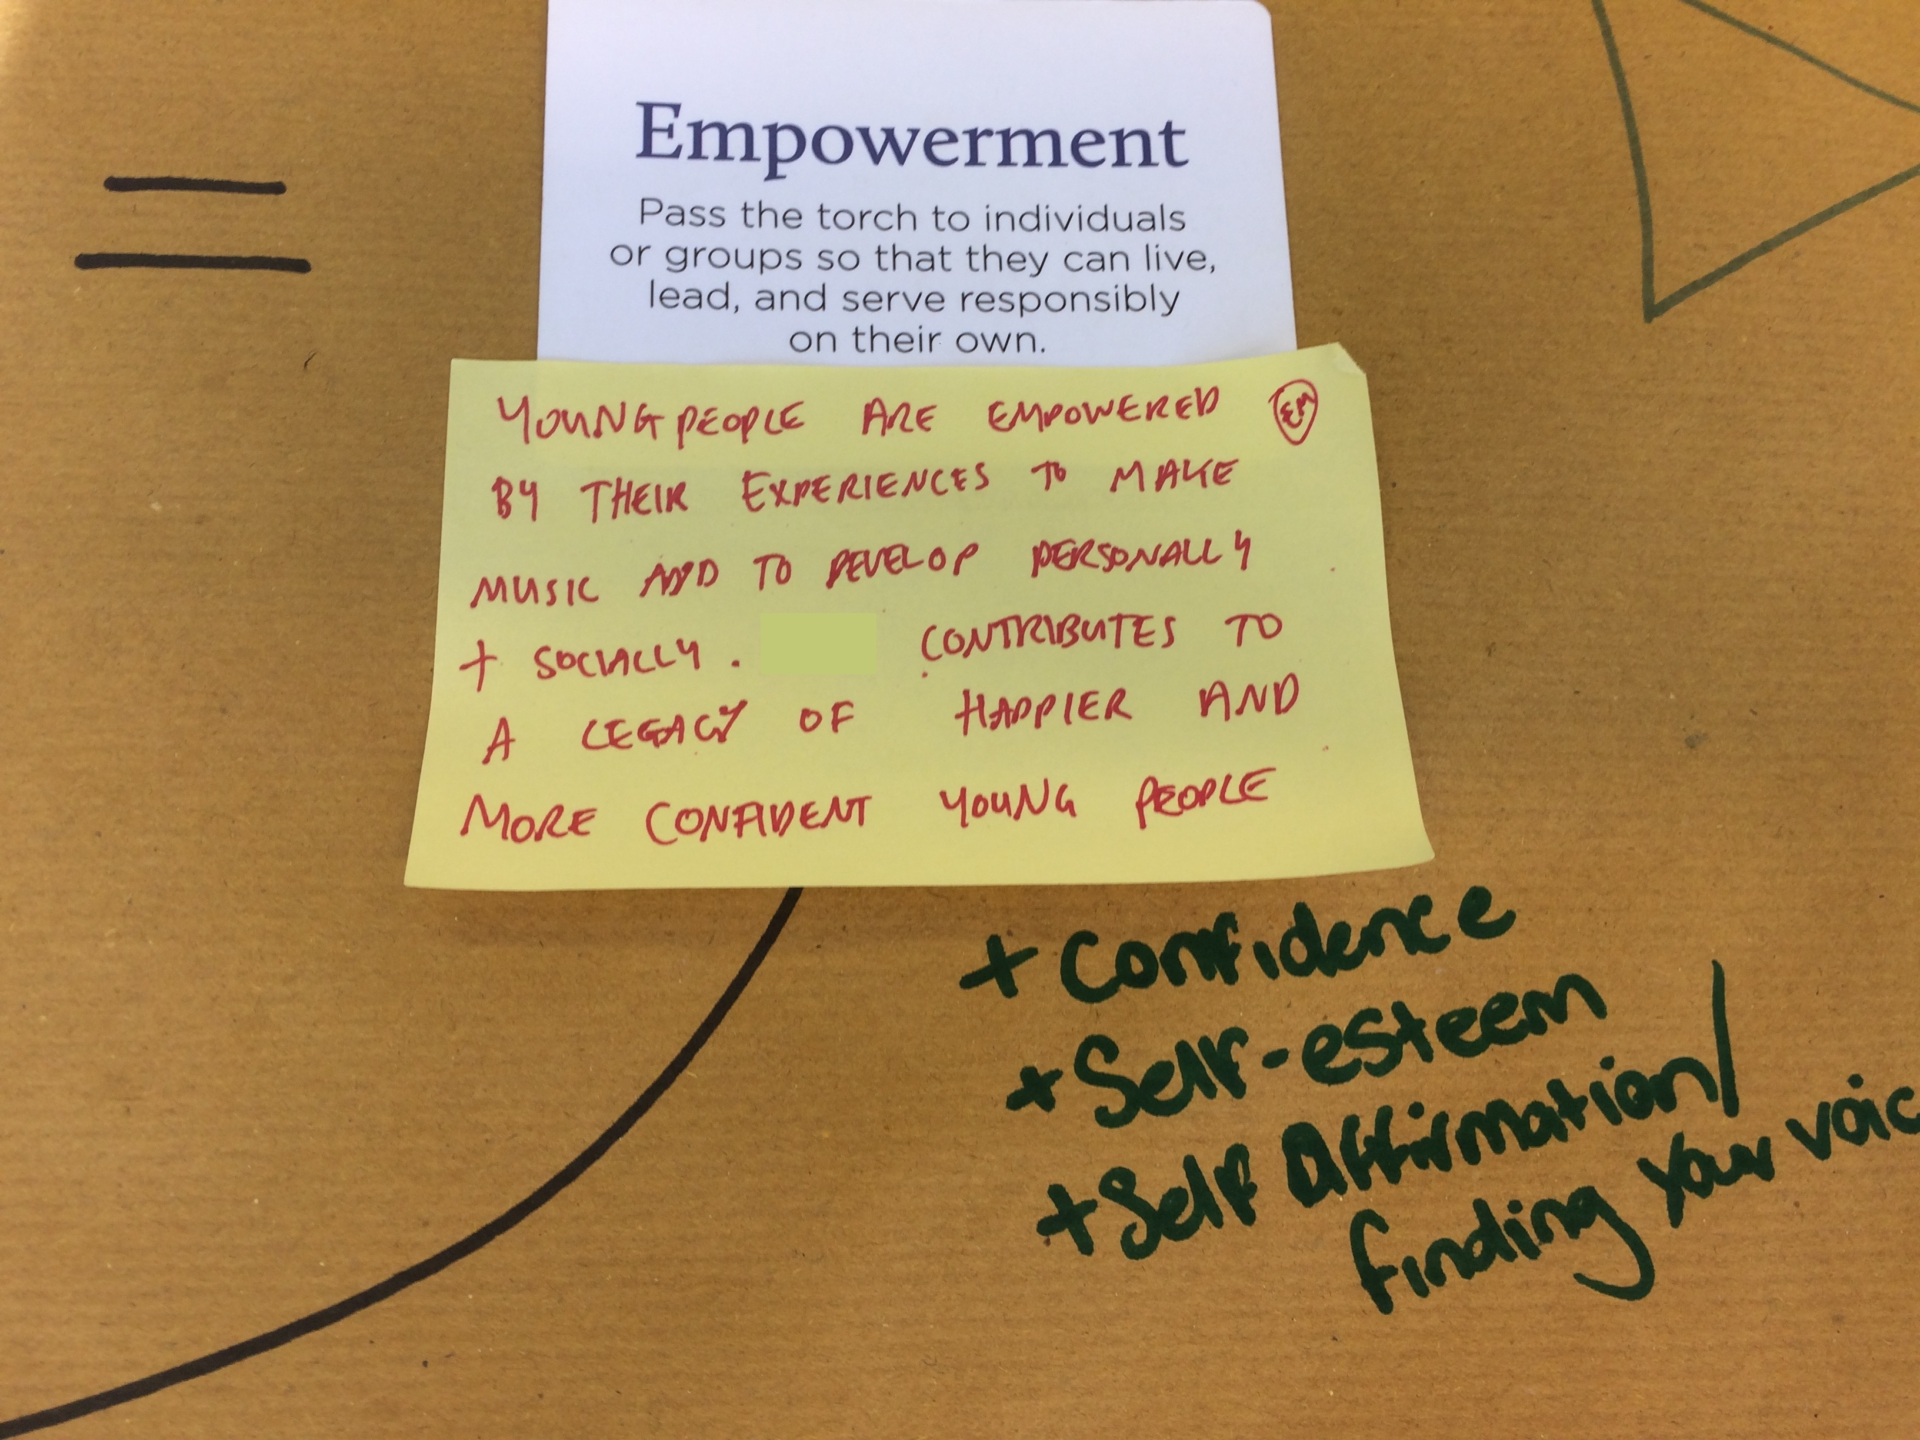 Empowerment
Pass the torch to individuals
or groups so that they can live,
lead, and serve responsibly
on their own.
YOUNG PEOPLE ARE EMPOWERED EM
BY THEIR EXPERIENCES TO MAKE
MUSIC AND TO DEVELOP PERSONALLY
+ SOCIALLY. CONTRIBUTES TO
A LEGACY OF HAPPIER AND
MORE CONFIDENT YOUNG PEOPLE
+ Confidence
+ Self-esteem
+ Self Affirmation/
finding your voic